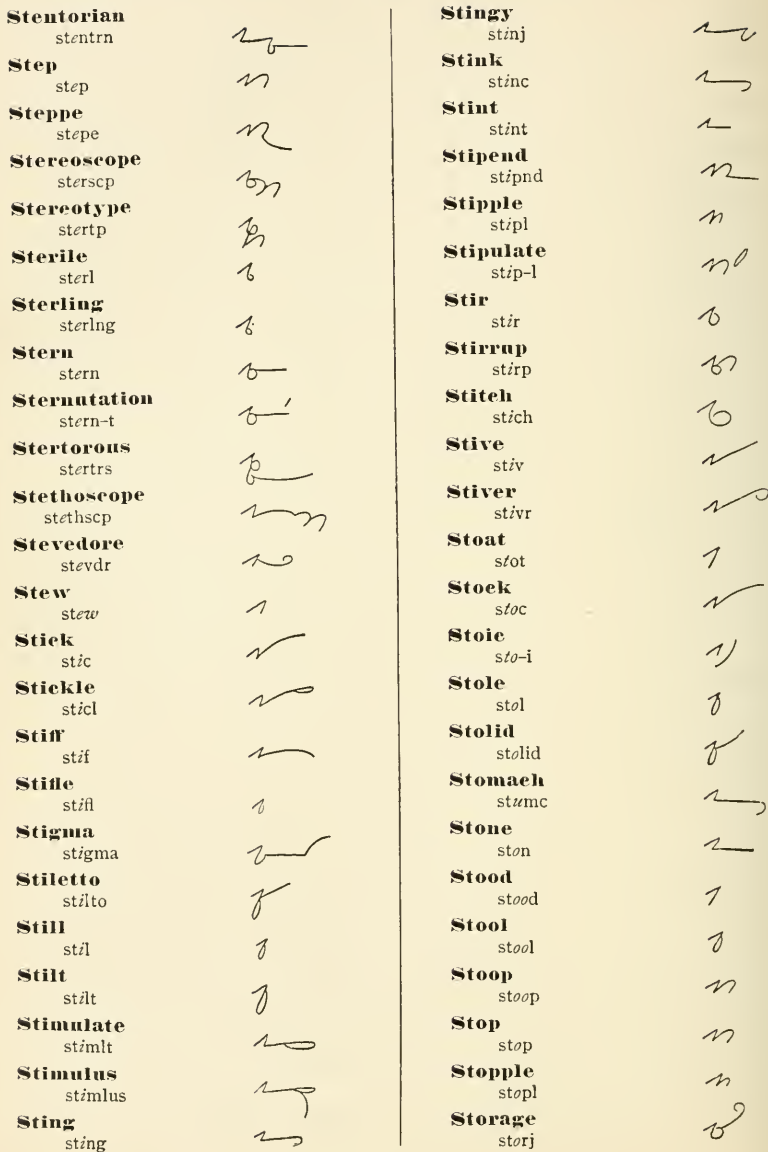 Stentorian
stentrn
Step
step
Steppe
stepe
Stereoscope
sterscp
Stereotype
stertp
Sterile
sterl
Sterling
sterlng
Stern
stern
Sternutation
stern-t
Stertorous
stertrs
Stethoscope
stethscp
Stevedore
stevdr
Stew
stew
Stick
stic
Stickle
sticl
Stiff
stif
Stifle
stifl
Stigma
stigma
Stiletto
stilto
Still
stil
Stilt
stilt
Stimulate
stimlt
Stimulus
stimlus
Sting
sting
Stingy
stinj
Stink
stinc
Stint
stint
Stipend
stipnd
Stipple
stipl
Stipulate
stip-l
Stir
stir
Stirrup
stirp
Stitch
stich
Stive
stiv
Stiver
stivr
Stoat
stot
Stock
stoc
Stoic
sto-i
Stole
stol
Stolid
stolid
Stomach
stumc
Stone
ston
Stood
stood
Stool
stool
Stoop
stoop
Stop
stop
Stopple
stopl
Storage
storj